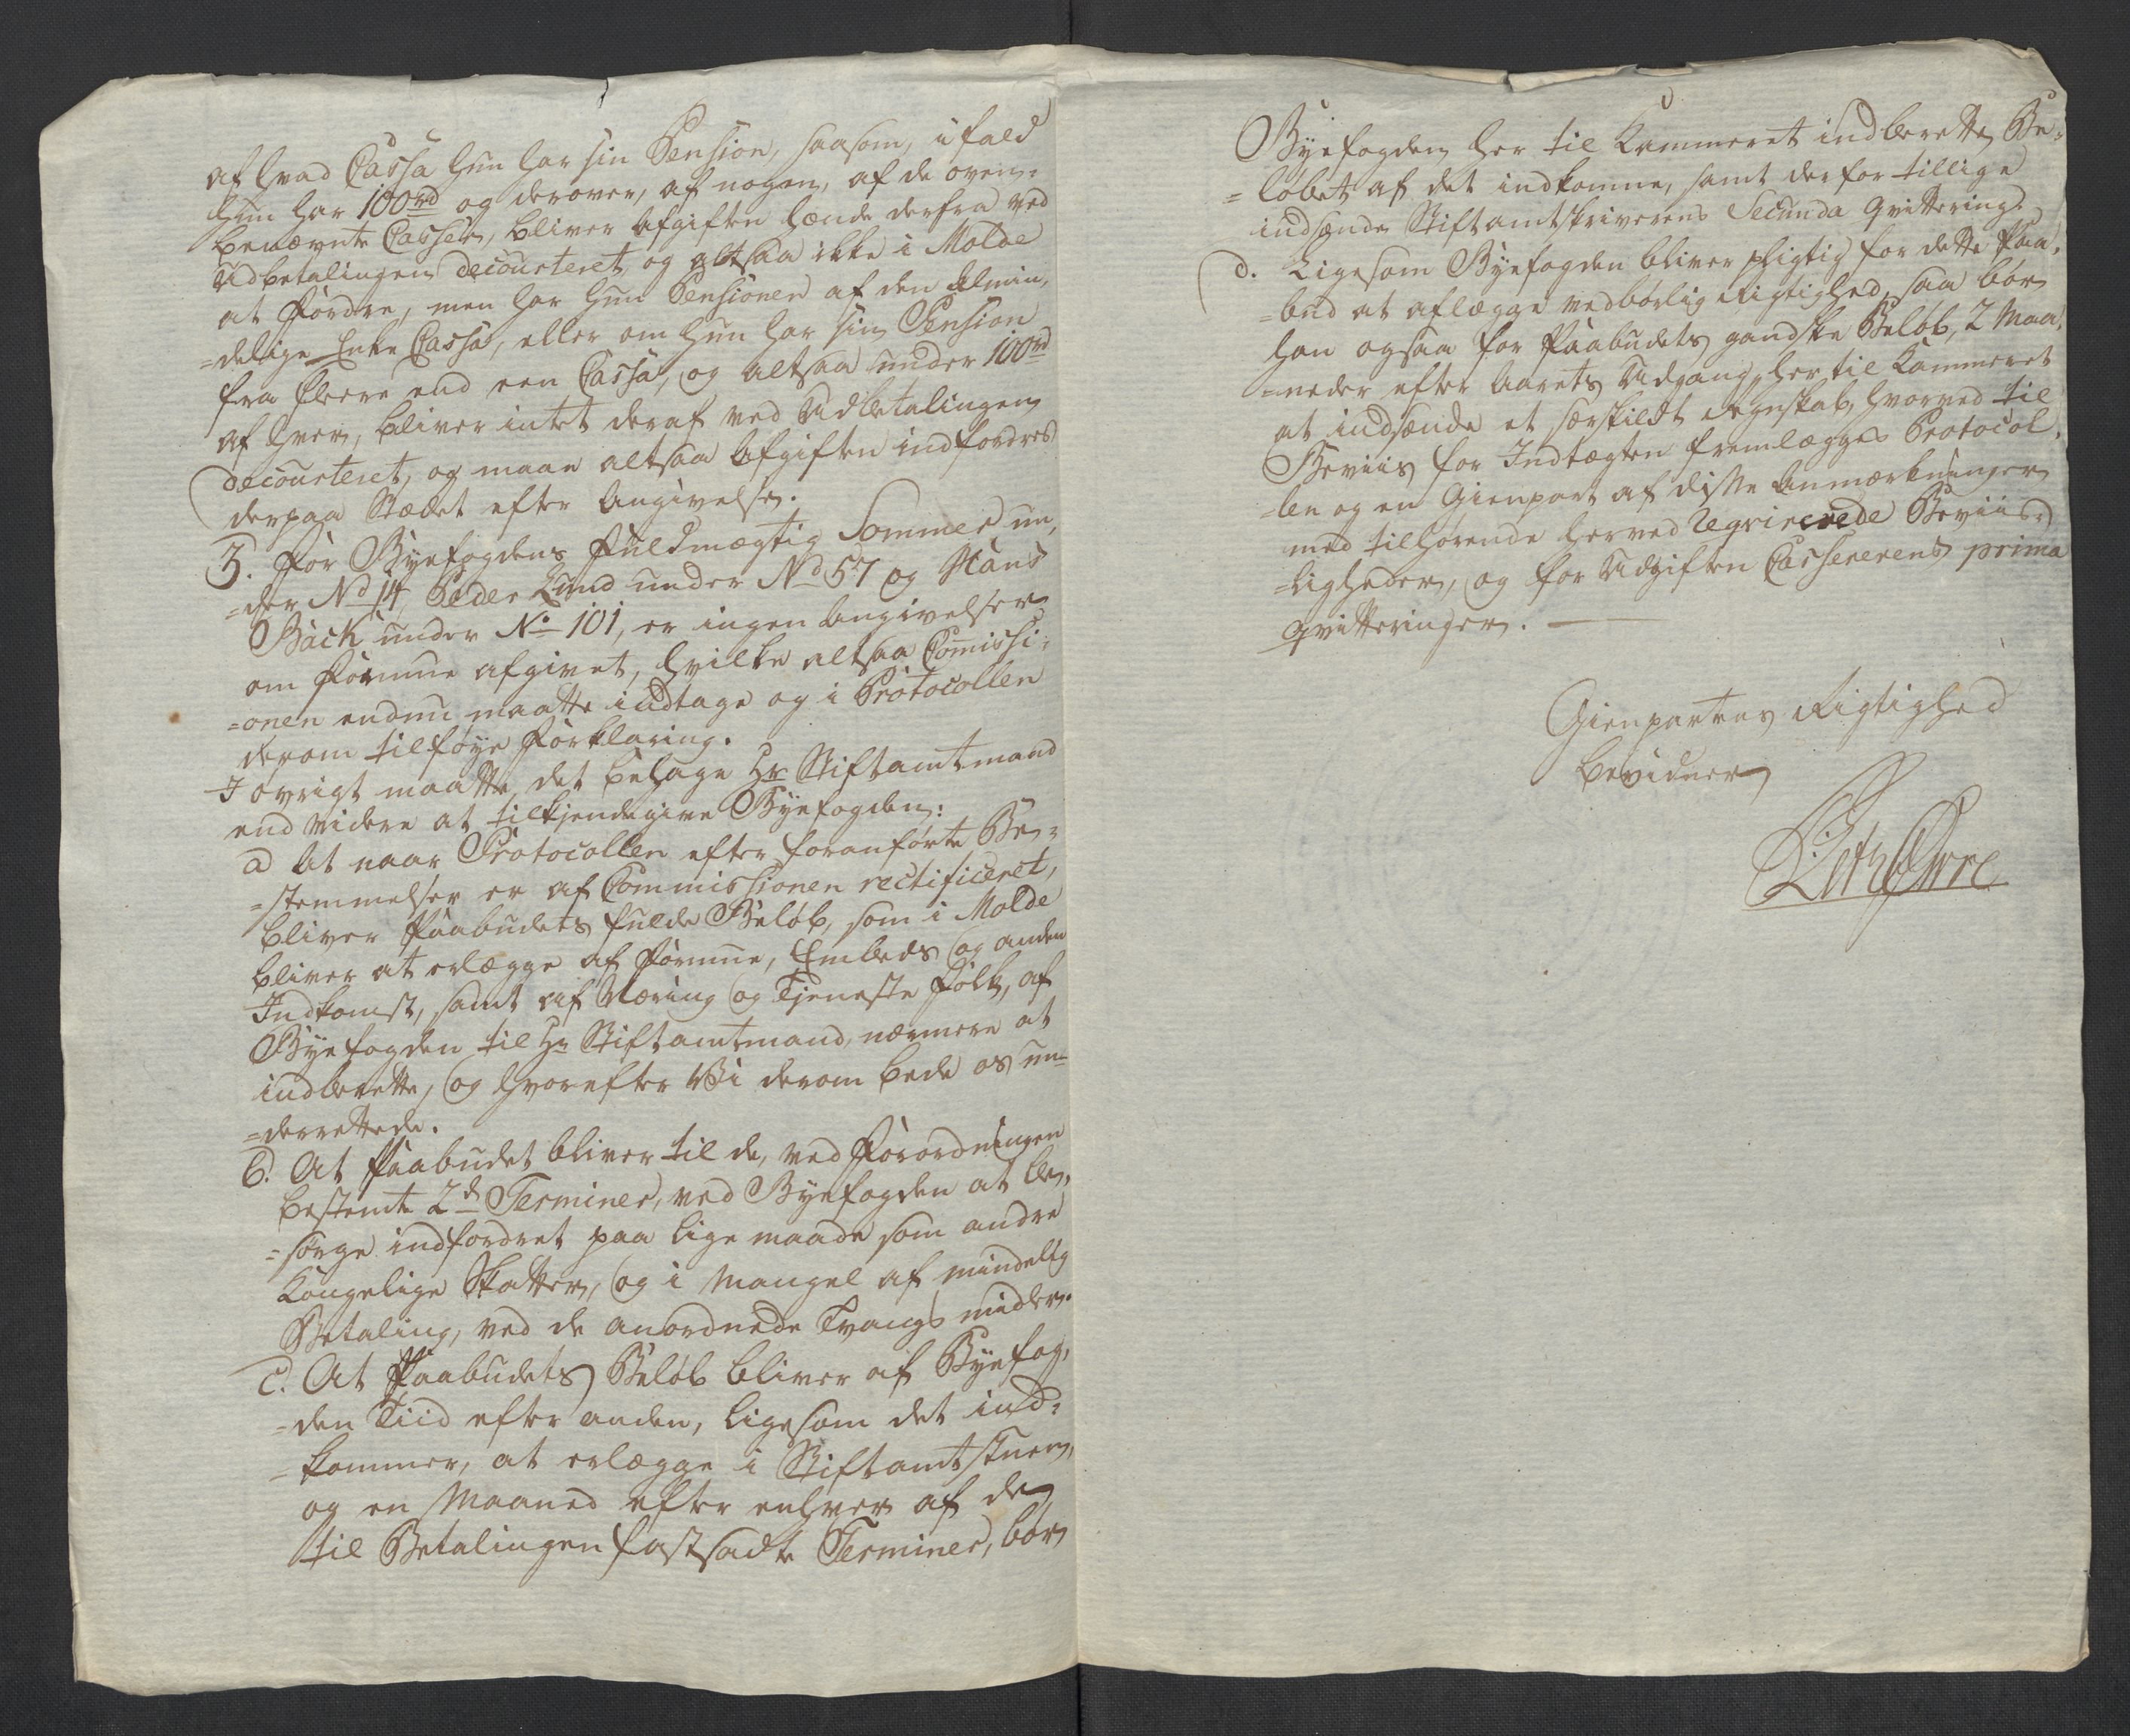 af hvad Cassa hun har sin Pension, saasom, i fald
hun har 100rd og derover, af nogen, af de oven-
benævnte Casser, bliver Afgiften hende derfra ved
Udbetalingen decourteret, og altsaa ikke i Molde
at fordre, men har hun Pensionen af den Almin-
=delige Enke Cassa, eller om hun har sin Pension
fra fleere end een Cassa, og altsaa under 100rd
af hver, bliver intet deraf ved Udbetalingen
decourteret, og maae altsaa Afgiften indfordres
derpaa Stædet efter Angivelse.
3. For Byefogdens Fuldmægtig Sommer un-
=der No 14, Peder Lund under No 57 og Hans
Bäck under No 101, er ingen Angivelser
om Formue afgivet, hvilke altsaa Comissi-
=onen endnu maatte indtage og i Protocollen
derom tilføye Forklaring.
I øvrigt maatte det behage Hr Stiftamtmand
end videre at tilkjendegive Byefogden:
a At naar Protocollen efter foranførte Be-
=stemmelser er af Commissionen rectificeret,
bliver Paabudets fulde Beløb, som i Molde
bliver at erlægge af Formue, Embeds og anden
Indkomst, samt af Næring og Tjeneste Folk, af
Byefogden til Hr Stiftamtmand nærmere at
indberette, og hvorefter Vi derom bede os un-
=derrettede.
b. At Paabudet bliver til de, ved Forordningen
bestemte 2de Terminer, ved Byefogden at be-
=sørge indfordret paa lige maade som andre
Kongelige Skatter, og i Mangel af mindelig
Betaling, ved de anordnede Tvangs midler.
c. At Paabudets Beløb bliver af Byefog-
=den Tiid efter anden, ligesom det ind-
=kommer, at erlægge i Stiftamtstuen,
og en Maaned efter enhver af de
til Betalingen fastsadte Terminer, bør
Byefogden her til Kammeret indberette Be-
=løbet af det indkomne, samt derfor tillige
indsende Stiftamtskriverens Secunda Qvittering.
d. Ligesom Byefogden bliver pligtig for dette Paa-
=bud at aflægge vedbørlig Rigtighed, saa bør
han ogsaa for Paabudets gandske Beløb, 2 Maa-
=neder efter Aarets Udgang, her til Kammeret
at indsende et særskildt Regnskab, hvorved til
Beviis for Indtægten fremlægges Protocol-
=len og en Gienpart af disse Anmærkninger
med tilhørende herved reqvirerede Beviis-
=ligheder, og for Udgiften Cassererens prima
Qvitteringer.
Gienpartens Rigtighed
bevidner